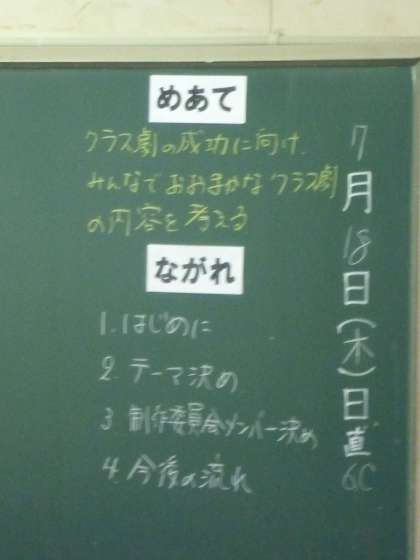 めあて
クラス劇の成功に向け、
みんなでおおまかなクラス劇
の内容を考える
ながれ
1. はじめに
2. テーマ決め
3. 制作委員会メンバー決め
4. 今後の流れ
7月18日(木)日直
6.C